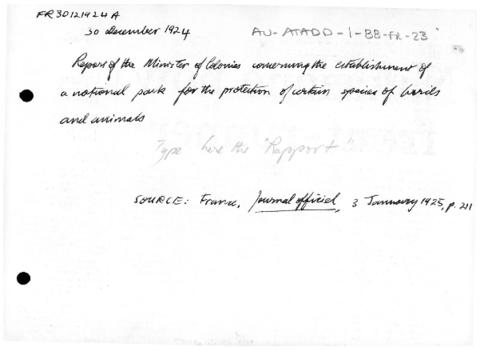 FR30121924A
30 December 1924
AU-ATADD-1-BB-FR-23
Report of the Minister of Colonies concerning the establishment of
a national park for the protection of certain species of birds
and animals
Type here the "Rapport"
SOURCE: France, Journal officiel, 3 January 1925, p. 211